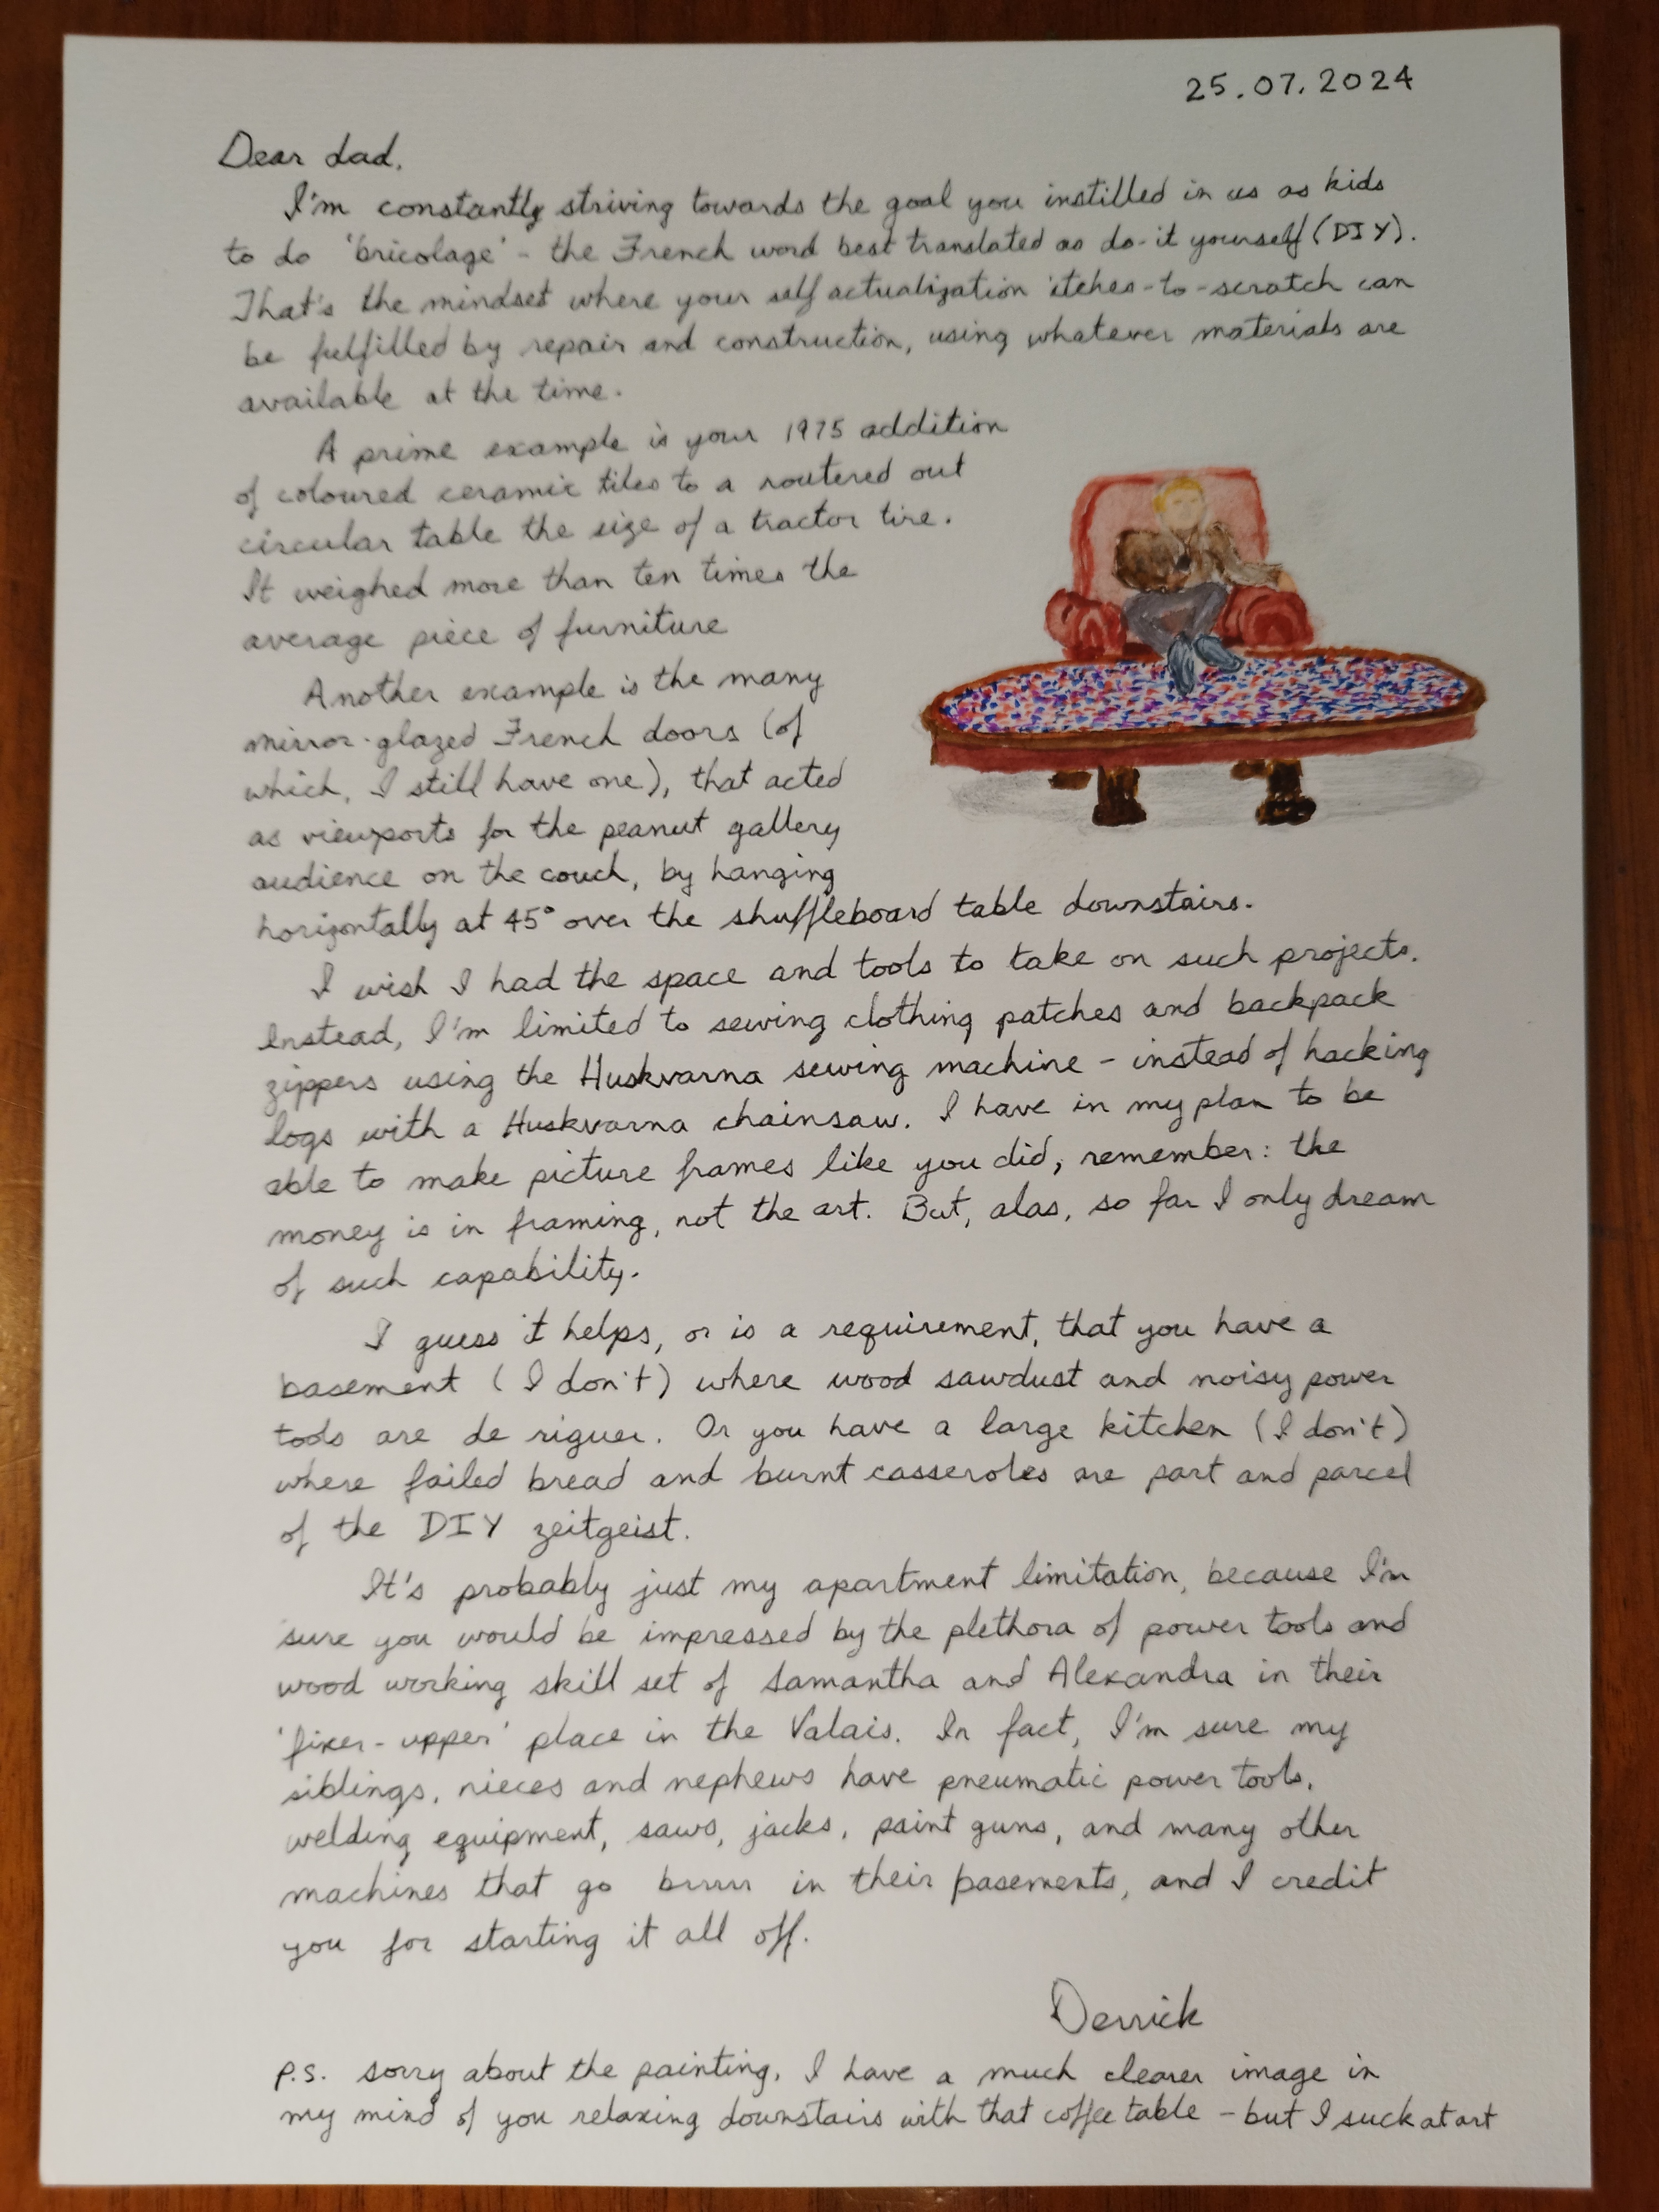 25.07.2024
Dear dad,
I'm constantly striving towards the goal you instilled in us as kids
to do 'bricolage' - the French word best translated as do-it yourself (DIY).
That's the mindset where your self actualization itches-to-scratch can
be fulfilled by repair and construction, using whatever materials are
available at the time.
A prime example is your 1975 addition
of coloured ceramic tiles to a routered out
circular table the size of a tractor tire.
It weighed more than ten times the
average piece of furniture
Another example is the many
mirror-glazed French doors (of
which, I still have one), that acted
as viewports for the peanut gallery
audience on the couch, by hanging
horizontally at 45° over the shuffleboard table downstairs.
I wish I had the space and tools to take on such projects.
Instead, I'm limited to sewing clothing patches and backpack
zippers using the Huskvarna sewing machine - instead of hacking
logs with a Huskvarna chainsaw. I have in my plan to be
able to make picture frames like you did, remember: the
money is in framing, not the art. But, alas, so far I only dream
of such capability.
I guess it helps, or is a requirement, that you have a
basement (I don't) where wood sawdust and noisy power
tools are de riguer. Or you have a large kitchen (I don't)
where failed bread and burnt casseroles are part and parcel
of the DIY zeitgeist.
It's probably just my apartment limitation, because I'm
sure you would be impressed by the plethora of power tools and
wood working skill set of Samantha and Alexandra in their
'fixer-upper' place in the Valais. In fact, I'm sure my
siblings, nieces and nephews have pneumatic power tools,
welding equipment, saws, jacks, paint guns, and many other
machines that go brrrr in their basements, and I credit
you for starting it all off.
Derrick
P.S. sorry about the painting, I have a much clearer image in
my mind of you relaxing downstairs with that coffee table - but I suck at art